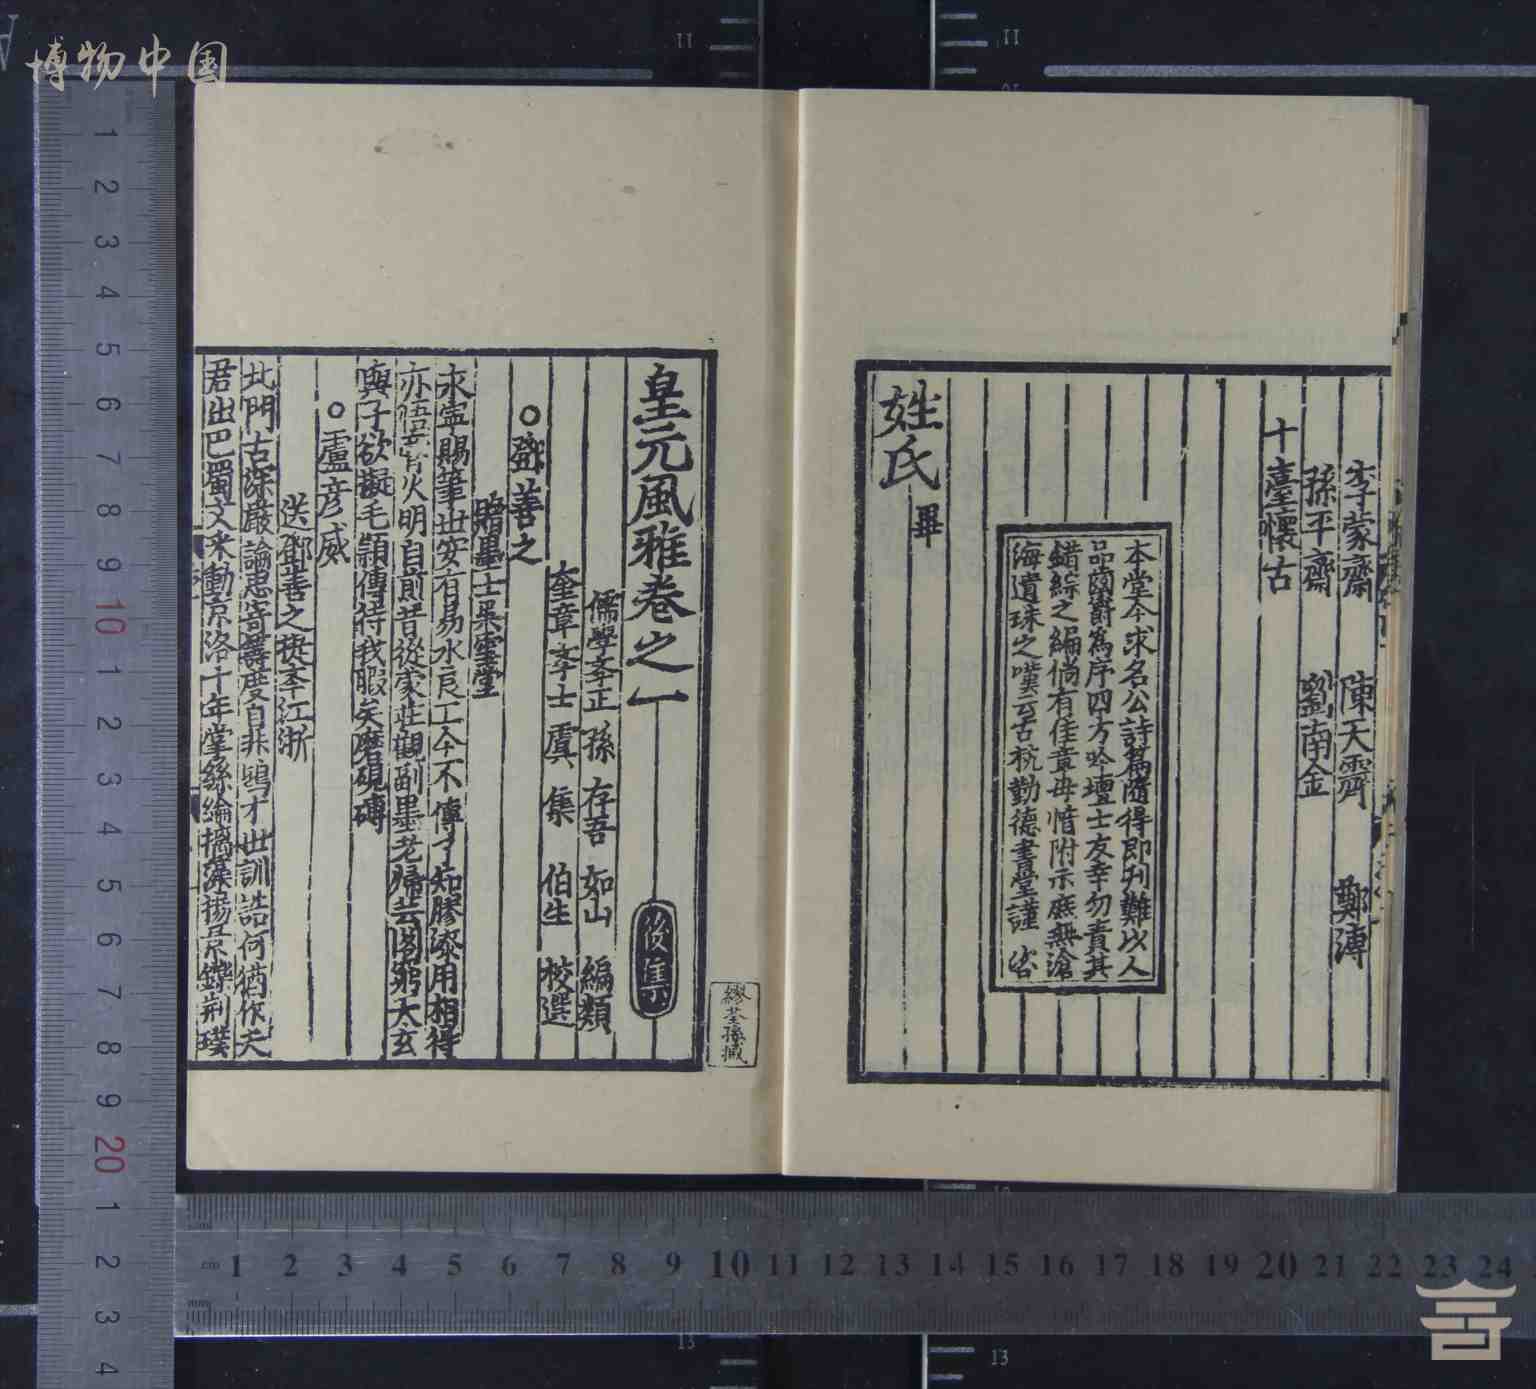 博物中国
李蒙齋 陳天霽 鄭溥
孫平齋 劉南金
十臺懷古
本堂今求名公詩篇隨得即刋難以人
品齒爵爲序四方吟壇士友幸勿責其
錯綜之編倘有佳章毋惜附示庶無滄
海遺珠之嘆云古杭勤德書堂謹咨
姓氏畢
皇元風雅卷之一 後集
儒學孝正孫 存吾 如山 編類
奎章李士虞 集 伯生 校選
○鄧善之
贈墨士吴雲堂
永寧賜筆出安有易水良工今不傳了知膠漆用相得
亦悟 火明自前昔從蒙莊觀副墨老歸芸閣窮大玄
與子欲擬毛頴傳待我暇矣磨硯磚
○盧彦威
送鄧善之提李江浙
北門古深嚴論思寄籌度自非鴻才世訓誥何猶作天
君出巴蜀文采動京洛十年掌絲綸摛藻揚景鑠荆璞
繆荃孫藏